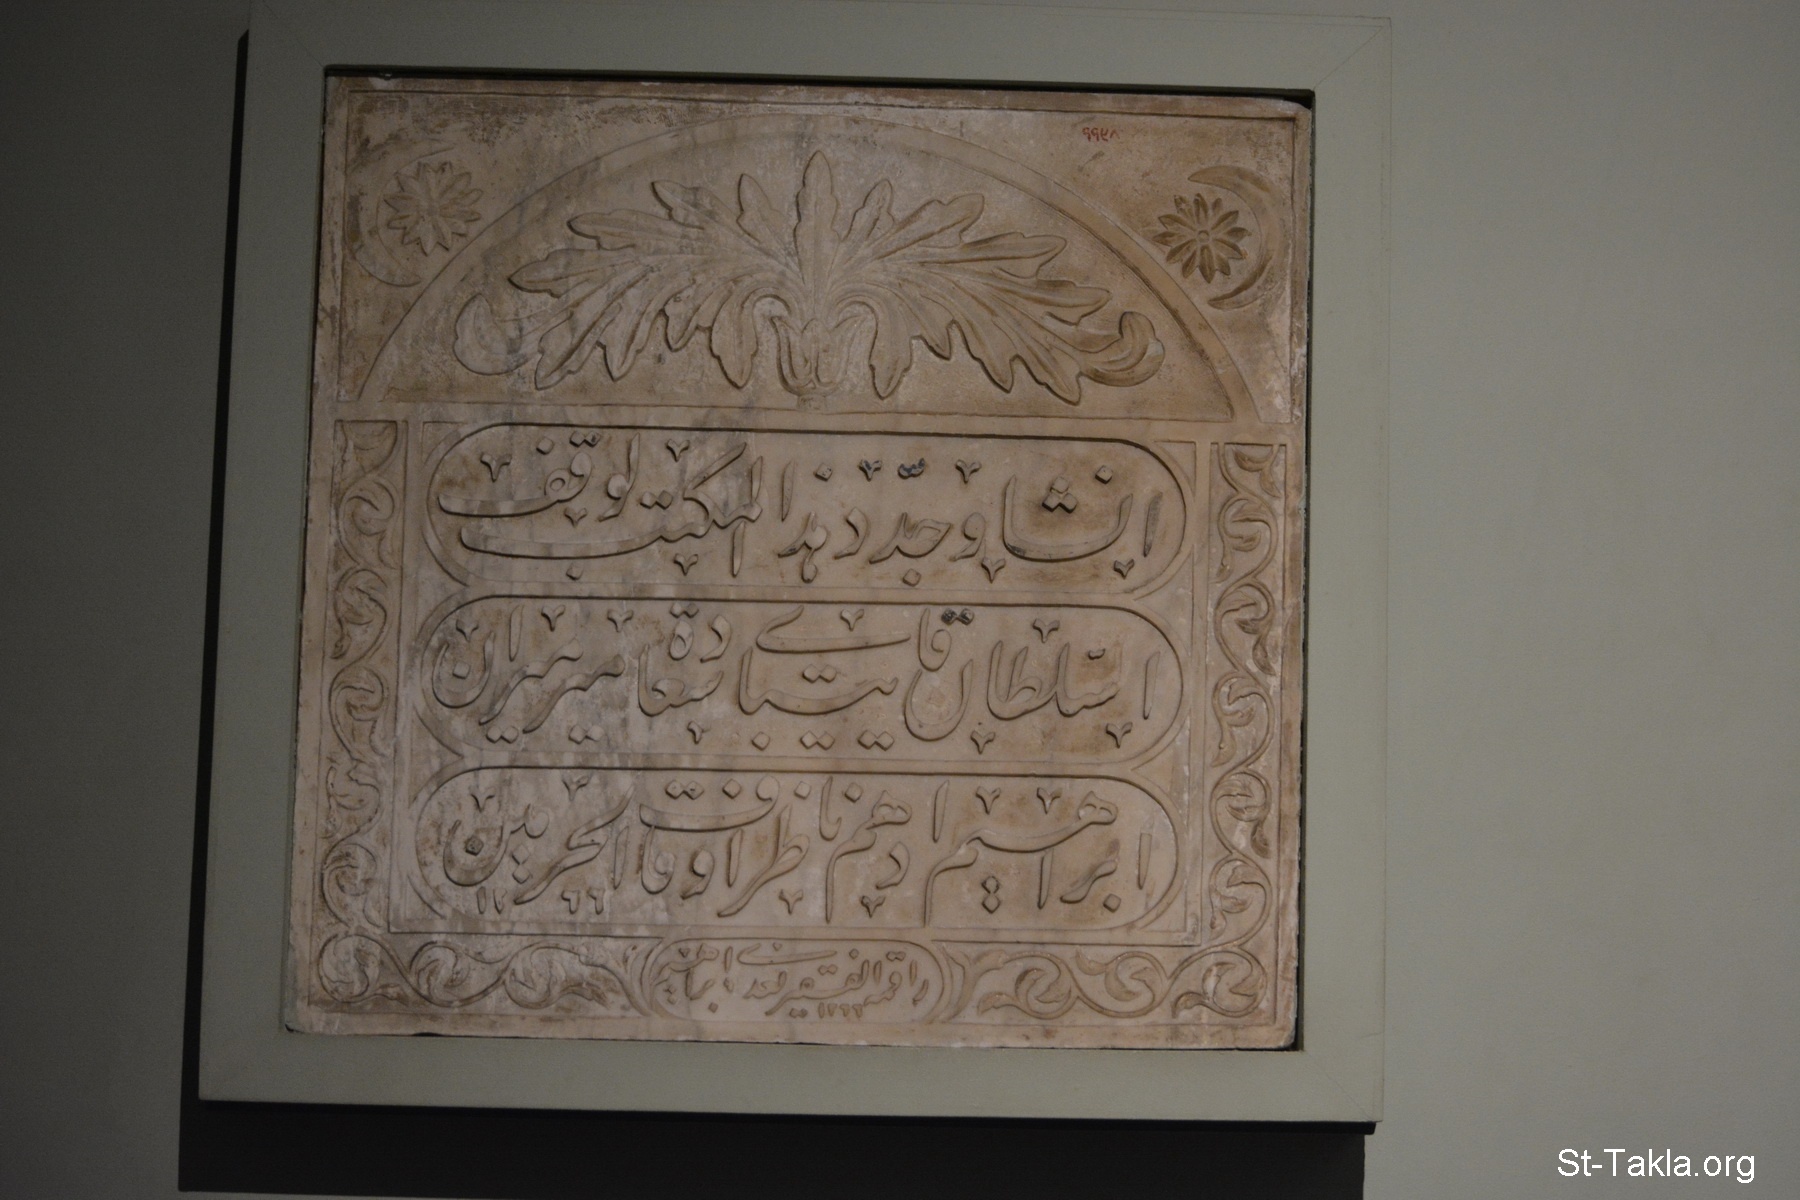 ٩٩٤٨
انشا وجدّد هذا المكتب لوقف
السّلطان قايتباي سعادة ميرميران
ابراهيم ادهم ناظر اوقاف الحرمين
١٢٦٦
راقمه الفقير
١٢٦٦
St-Takla.org